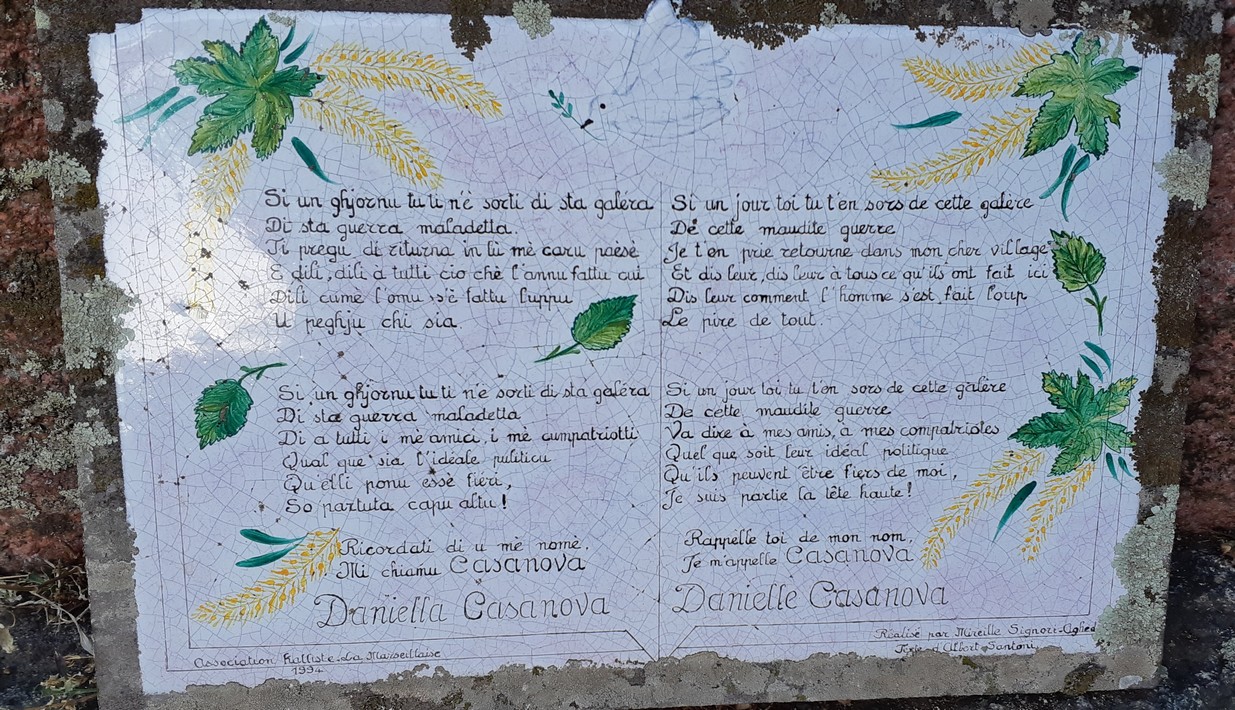 Si un ghjornu tu ti n'è sorti di sta galéra
Di sta guerra maladetta.
Ti pregu di riturna in lù mè caru paèsè
E dili, dili à tutti cio chè l'annu fattu cui
Dili cumè l'omu s'è fattu l'uppu
U peghju chi sia.
Si un ghjornu tu ti n'è sorti di sta galéra
Di sta guerra maladetta
Di a tutti i mè amici, i mè cumpatriotti
Qual que sia l'idéale puliticu
Qu'elli ponu essè fieri,
So partuta capu altu !
Ricordati di u mè nomè.
Mi chiamu Casanova
Daniella Casanova
Si un jour toi tu t'en sors de cette galère
De cette maudite guerre
Je t'en prie retourne dans mon cher village
Et dis leur, dis leur à tous ce qu'ils ont fait ici
Dis leur comment l'homme s'est fait loup
Le pire de tout.
Si un jour toi tu t'en sors de cette galère
De cette maudite guerre
Va dire à mes amis, a mes compatriotes
Quel que soit leur idéal politique
Qu'ils peuvent être fiers de moi,
Je suis partie la tête haute !
Rappelle toi de mon nom,
Je m'appelle Casanova
Danielle Casanova
Association Kalliste-La Marseillaise
1994
Réalisé par Mireille Signori
Texte d'Albert Santoni